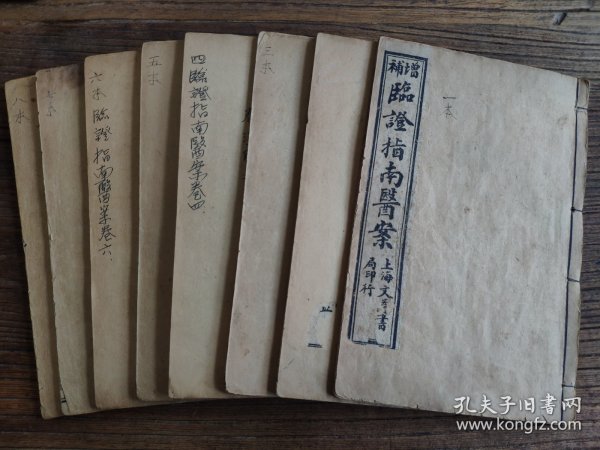 一本
增補
臨證指南醫案
上海文書
局印行
三本
四臨證指南醫案卷四
五本
六本臨證指南醫案卷六
七本
八本
孔夫子旧书网
www.kongfz.com